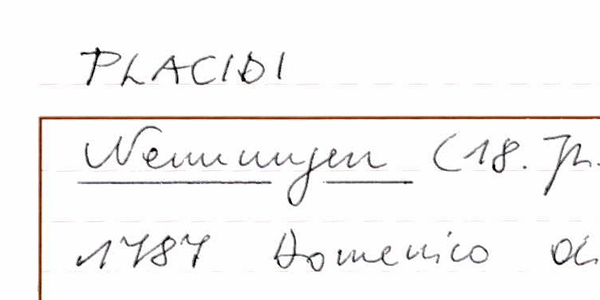 PLACIDI
Nennungen (18. Jh.
1787 Domenico di